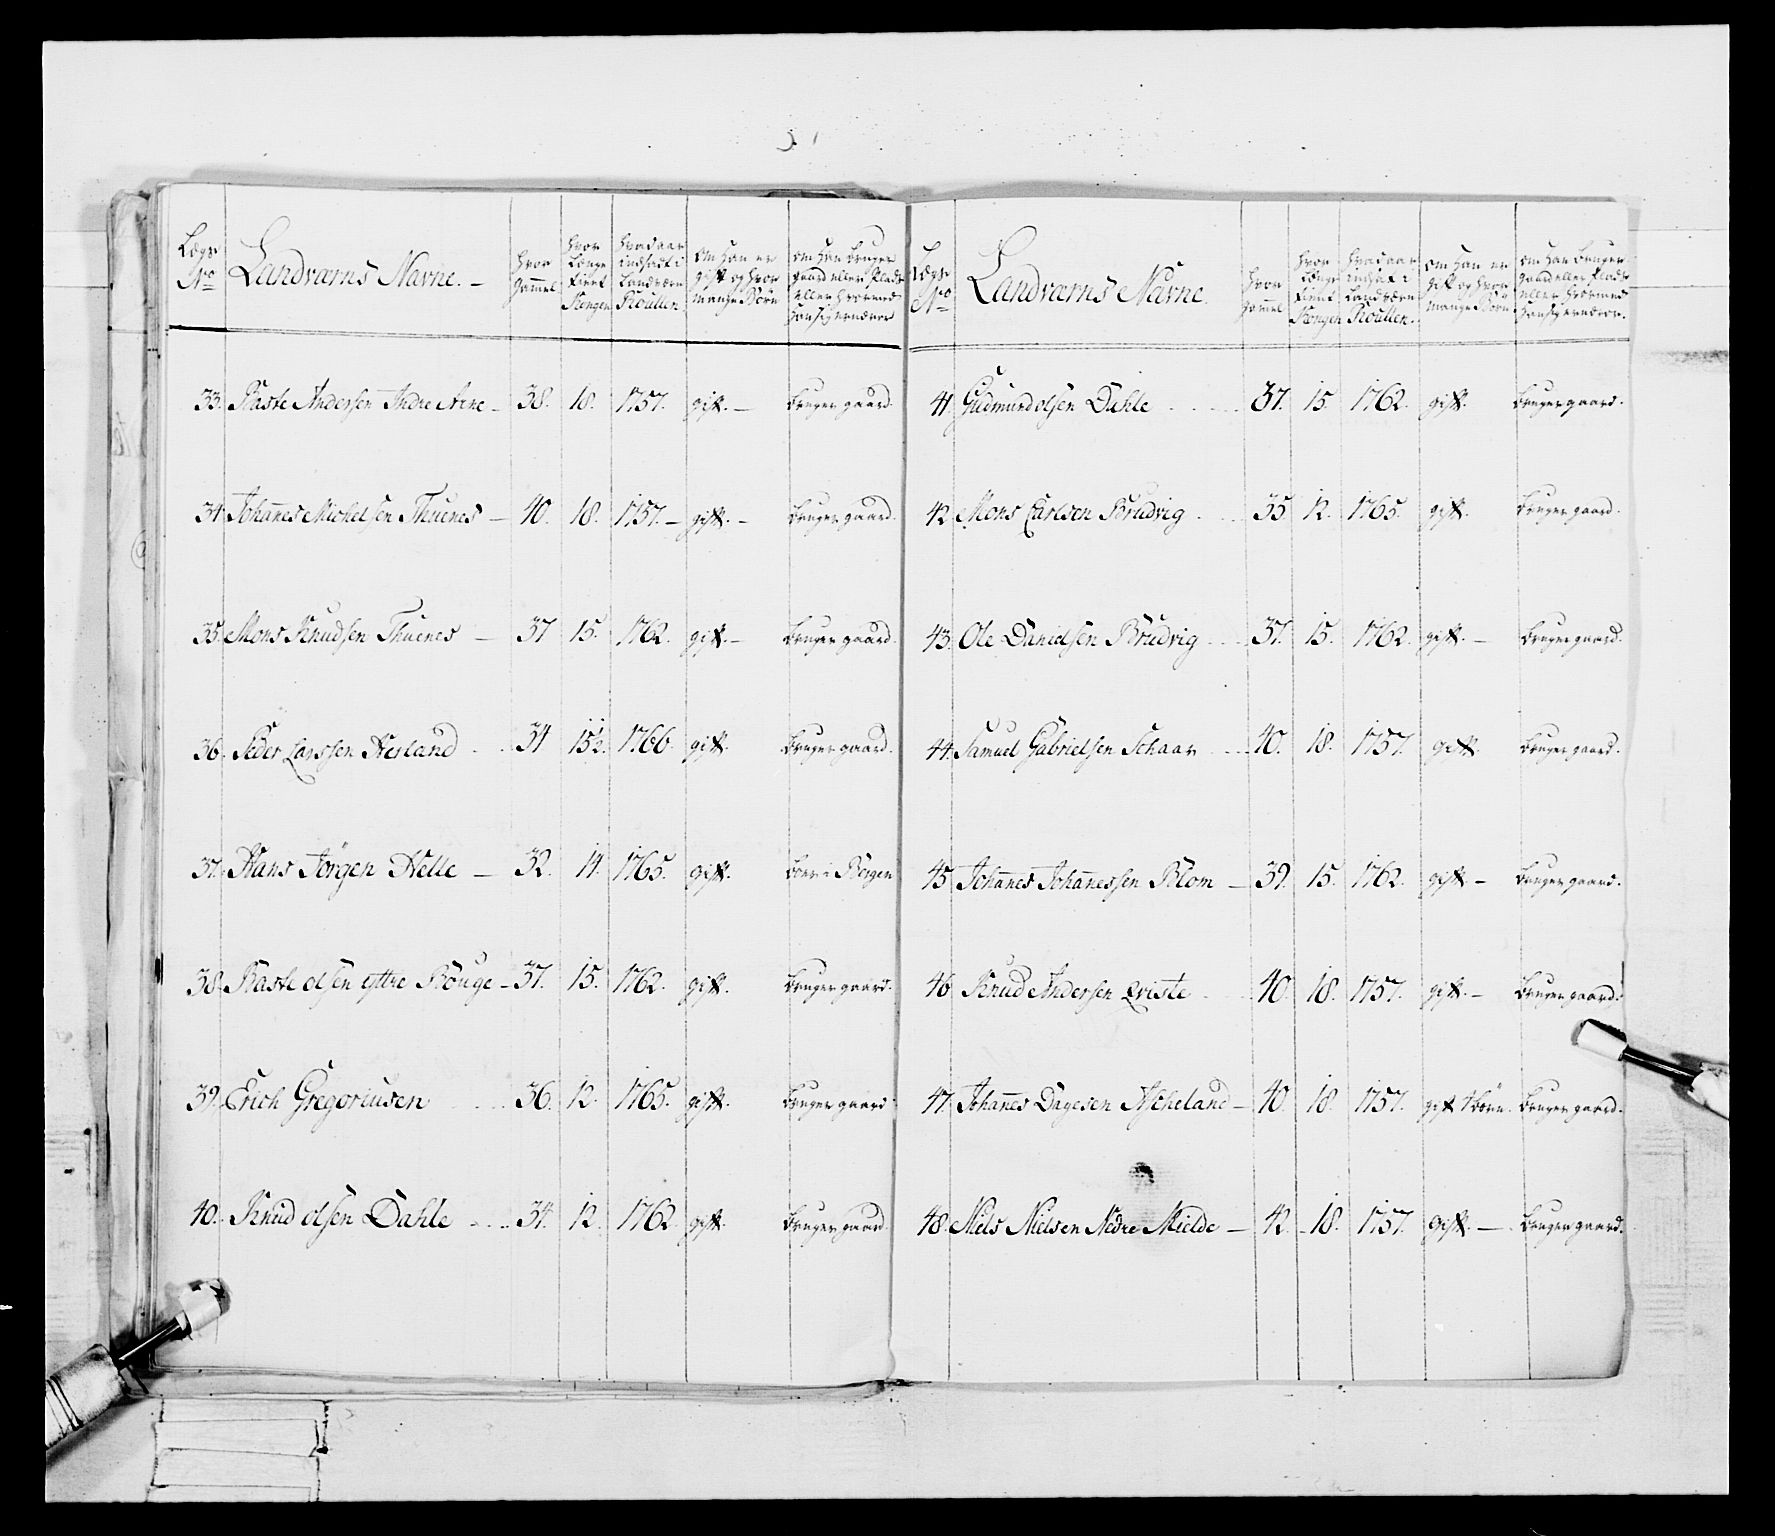 Lægs No
Landværns Navne. -
Hvor gammel
hvor længe tient Kongen
hvad aar indsadt i Landværn Roullen.
Om han er gift og hvor mange Børn
om han bruger gaard eller Plads eller hvormed han sig ernærer
33. Baste Andersen Indre Arne - 38. 18. 1757. gift. - bruger gaard.
34 Johannes Michelsen Thuenes - 40. 18. 1757. - gift. - bruger gaard.
35. Mons Knudsen Thuenes - 37 15. 1762. gift. - bruger gaard.
36. Peder Larssen Herland 34 15½. 1766. gift. bruger gaard.
37. Hans Jörgen Helle - 32. 14. 1765. gift. boer i Bergen
38. Baste olsen yttre Bouge - 37. 15. 1762. gift. bruger gaard.
39. Erich Gregoriusen 36. 12. 1765. gift. bruger gaard
40. Knud olsen Dahle - 34. 12. 1762. gift. bruger gaard.
Lægs No
Landværns Navne.
Hvor gammel
hvor længe tient Kongen
hvad aar indsat i Landværn Roullen.
Om han er gift og hvor mange Börn
om han bruger gaard eller Plads eller hvormed han sig ernærer.
41. Gudmund olsen Dahle 37. 15. 1762. gift. bruger gaard.
42. Mons Carlsen Brudvig 35. 12. 1765. gift. bruger gaard.
43. Ole Danielsen Brudvig 37. 15. 1762. gift. - bruger gaard.
44. Samuel Gabrielsen Schaar 40. 18. 1757. gift. bruger gaard.
45 Johannes Johannessen Blom - 39. 15. 1762. gift. - bruger gaard.
46 Knud Andersen Qviste 40. 18. 1757. gift. - bruger gaard.
47. Johannes Dagesen Ascheland - 40. 18. 1757. gift börn. bruger gaard.
48. Niels Nielsen Nedre Mielde - 42. 18. 1757. gift. - bruger gaard.